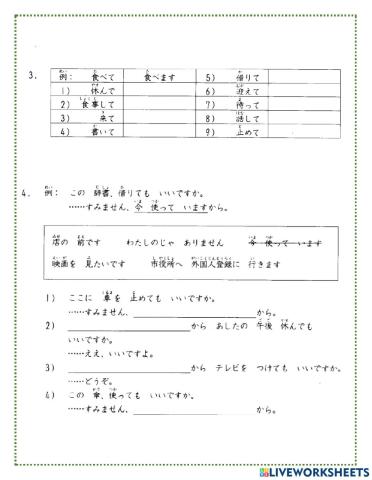 3.
例: 食べて 食べます 5) 借りて
1) 休んで 6) 迎えて
2) 食事して 7) 待って
3) 来て 8) 話して
4) 書いて 9) 止めて
4. 例: この 辞書、借りても いいですか。
……すみません、今 使って いますから。
店の 前です わたしのじゃ ありません 今 使って います
映画を 見たいです 市役所へ 外国人登録に 行きます
1) ここに 車を 止めても いいですか。
……すみません、 から。
2) から あしたの 午後 休んでも
いいですか。
……ええ、いいですよ。
3) から テレビを つけても いいですか。
……どうぞ。
4) この 傘、使っても いいですか。
……すみません、 から。
LIVEWORKSHEETS